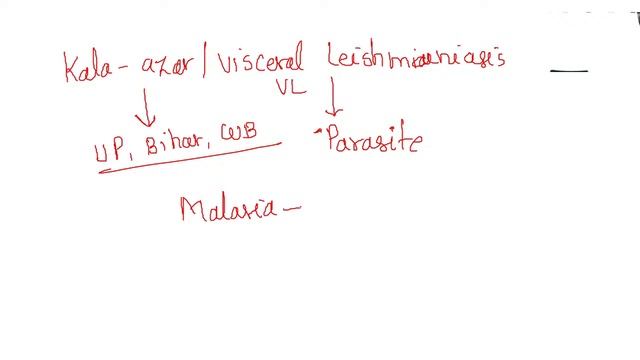 Kala-azar/Visceral Leishmaniasis
VL
UP, Bihar, WB
Parasite
Malaria -